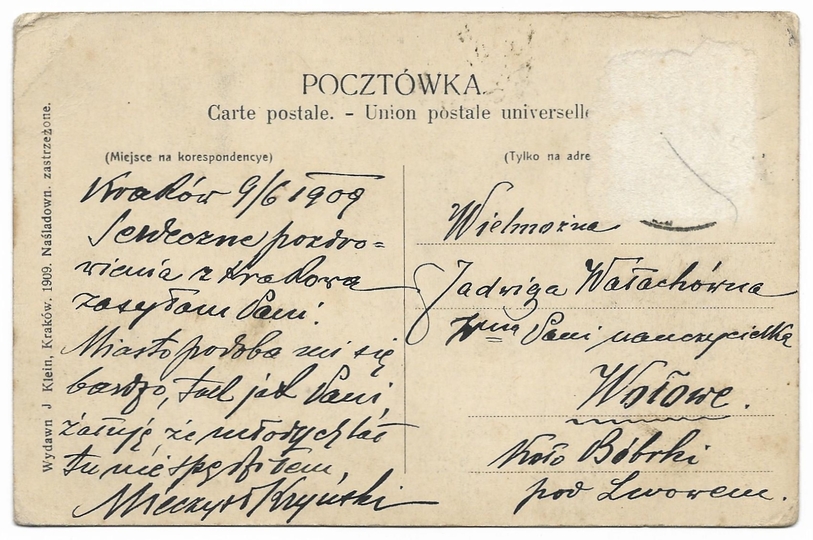 POCZTÓWKA.
Carte postale. - Union postale universelle
(Miejsce na korespondencye)
(Tylko na adre
Wydawn J Klein, Kraków. 1909. Naśladown. zastrzeżone.
Kraków 9/6 1909
Serdeczne pozdro=
wienia z Krakowa
zasyłam Pani.
Miasto podoba mi się
bardzo, tak jak Pani,
żałuję że młodych lat
tu nie spędziłem,
Mieczysł Krzyński
Wielmożna
Jadwiga Wałachówna
Pani nauczycielka
Wołowe.
Koło Bóbrki
pod Lwowem.